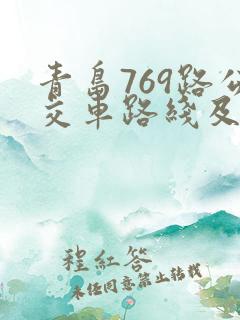 青岛769路公
交车路线及
程红答
未经同意禁止转载